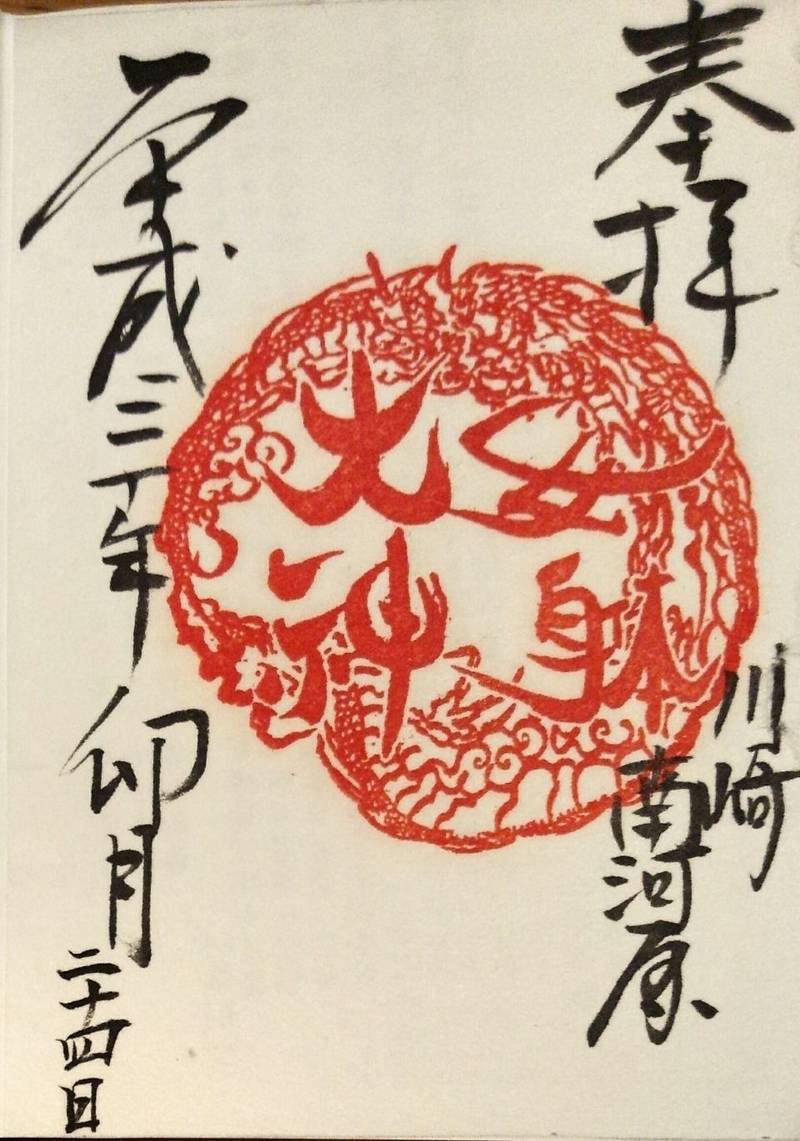 奉拝
川崎
南河原
女躰
大神
平成三十年卯月二十四日